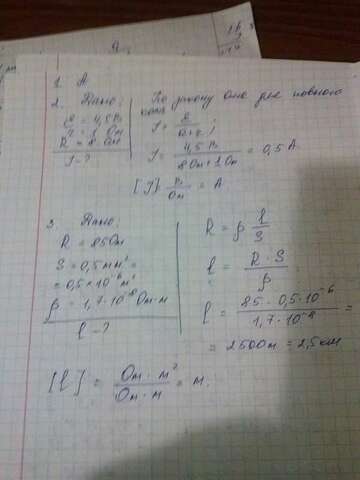 1. А
2. Дано:
ε = 4,5 В
r = 1 Ом
R = 8 Ом
I - ?
По закону Ома для полного
I = ε / (R + r) ;
I = 4,5 В / (8 Ом + 1 Ом) = 0,5 А
[I] = В / Ом = А
3. Дано:
R = 85 Ом
S = 0,5 мм² =
= 0,5 × 10⁻⁶ м²
ρ = 1,7 · 10⁻⁸ Ом · м
l - ?
R = ρ l / S
l = R · S / ρ
l = 85 · 0,5 · 10⁻⁶ / 1,7 · 10⁻⁸ =
= 2500 м = 2,5 км
[l] = Ом · м² / Ом · м = м.